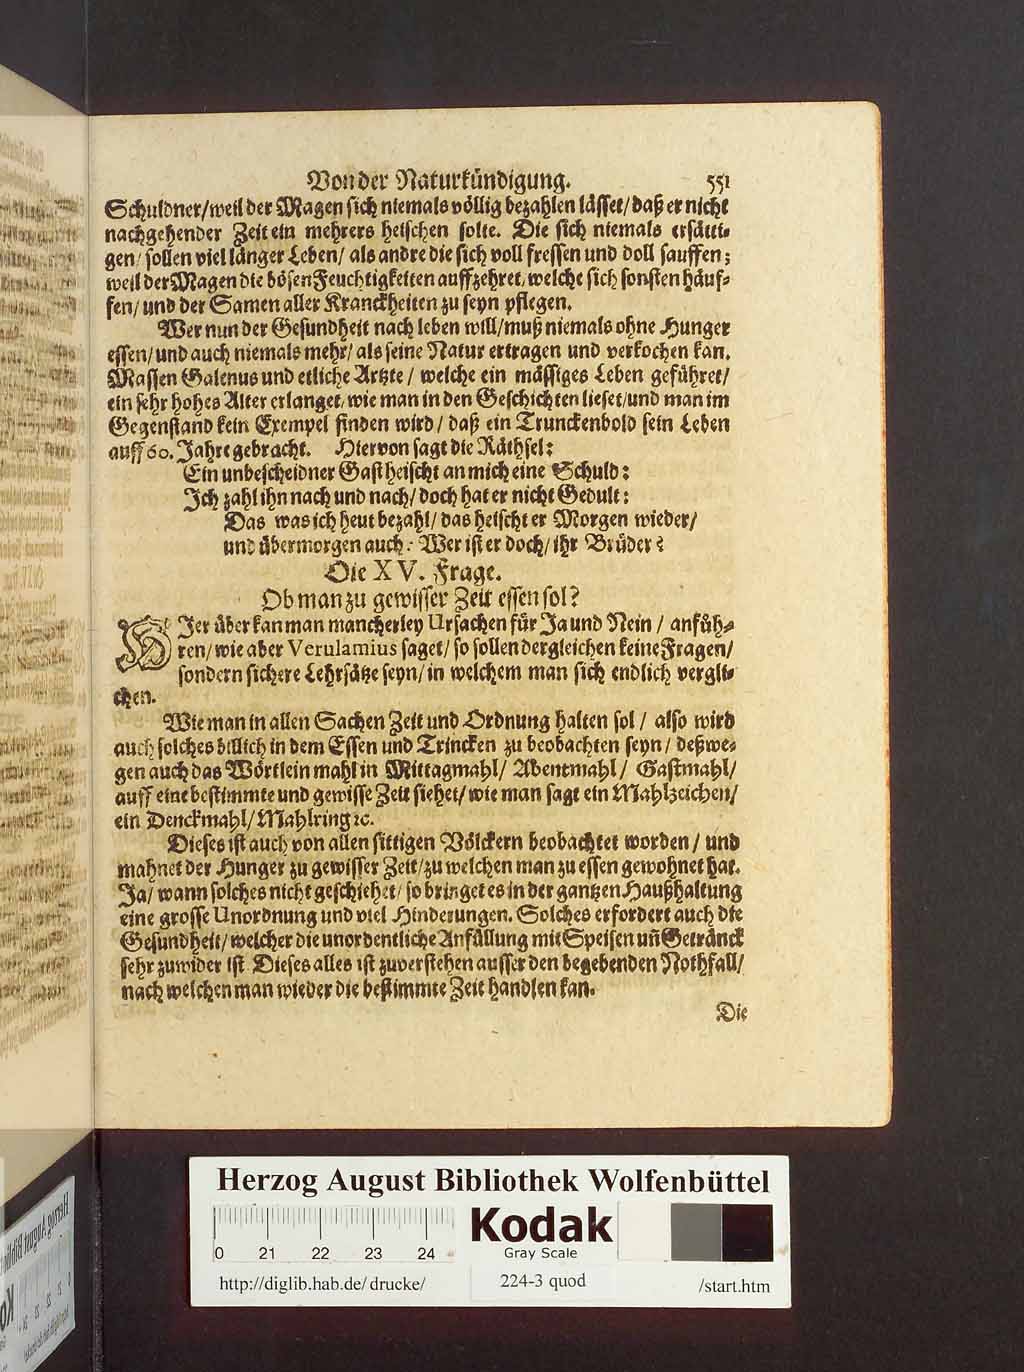 Von der Naturkündigung. 551
Schuldner/weil der Magen sich niemals völlig bezahlen lässet/ daß er nicht
nachgehender Zeit ein mehrers heischen solte. Die sich niemals ersätti-
gen/ sollen viel länger Leben/ als andre die sich voll fressen und doll sauffen;
weil der Magen die bösen Feuchtigkeiten auffzehret/ welche sich sonsten häuf-
fen/ und der Samen aller Kranckheiten zu seyn pflegen.
Wer nun der Gesundheit nach leben will/ muß niemals ohne Hunger
essen/ und auch niemals mehr/ als seine Natur ertragen und verkochen kan.
Massen Galenus und etliche Artzte/ welche ein mässiges Leben geführet/
ein sehr hohes Alter erlanget/ wie man in den Geschichten lieset/ und man im
Gegenstand kein Exempel finden wird/ daß ein Trunckenbold sein Leben
auff 60. Jahr gebracht. Hiervon sagt die Räthsel:
Ein unbescheidner Gast heischt an mich eine Schuld:
Ich zahl ihn nach und nach/ doch hat er nicht Gedult:
Das was ich heut bezahl/ das heischt er Morgen wieder/
und übermorgen auch: Wer ist er doch/ ihr Brüder?
Die XV. Frage.
Ob man zu gewisser Zeit essen sol?
HIer über kan man mancherley Ursachen für Ja und Nein/ anfüh-
ren/ wie aber Verulamius saget/ so sollen dergleichen keine Fragen/
sondern sichere Lehrsätze seyn/ in welchem man sich endlich vergli-
chen.
Wie man in allen Sachen Zeit und Ordnung halten sol/ also wird
auch solches billich in dem Essen und Trincken zu beobachten seyn/ deßwe-
gen auch das Wörtlein mahl in Mittagmahl/ Abentmahl/ Gastmahl/
auff eine bestimmte und gewisse Zeit siehet/ wie man sagt ein Mahlzeichen/
ein Denckmahl/ Mahlring ꝛc.
Dieses ist auch von allen sittigen Völckern beobachtet worden/ und
mahnet der Hunger zu gewisser Zeit/ zu welchen man zu essen gewohnet hat.
Ja/ wann solches nicht geschiehet/ so bringet es in der gantzen Haußhaltung
eine grosse Unordnung und viel Hinderungen. Solches erfordert auch die
Gesundheit/ welcher die unordentliche Anfüllung mit Speisen uñ Getränck
sehr zuwider ist Dieses alles ist zuverstehen ausser den begebenden Nothfall/
nach welchen man wieder die bestimmte Zeit handlen kan.
Die
Herzog August Bibliothek Wolfenbüttel
0 21 22 23 24
Kodak
Gray Scale
http://diglib.hab.de/drucke/ 224-3 quod /start.htm